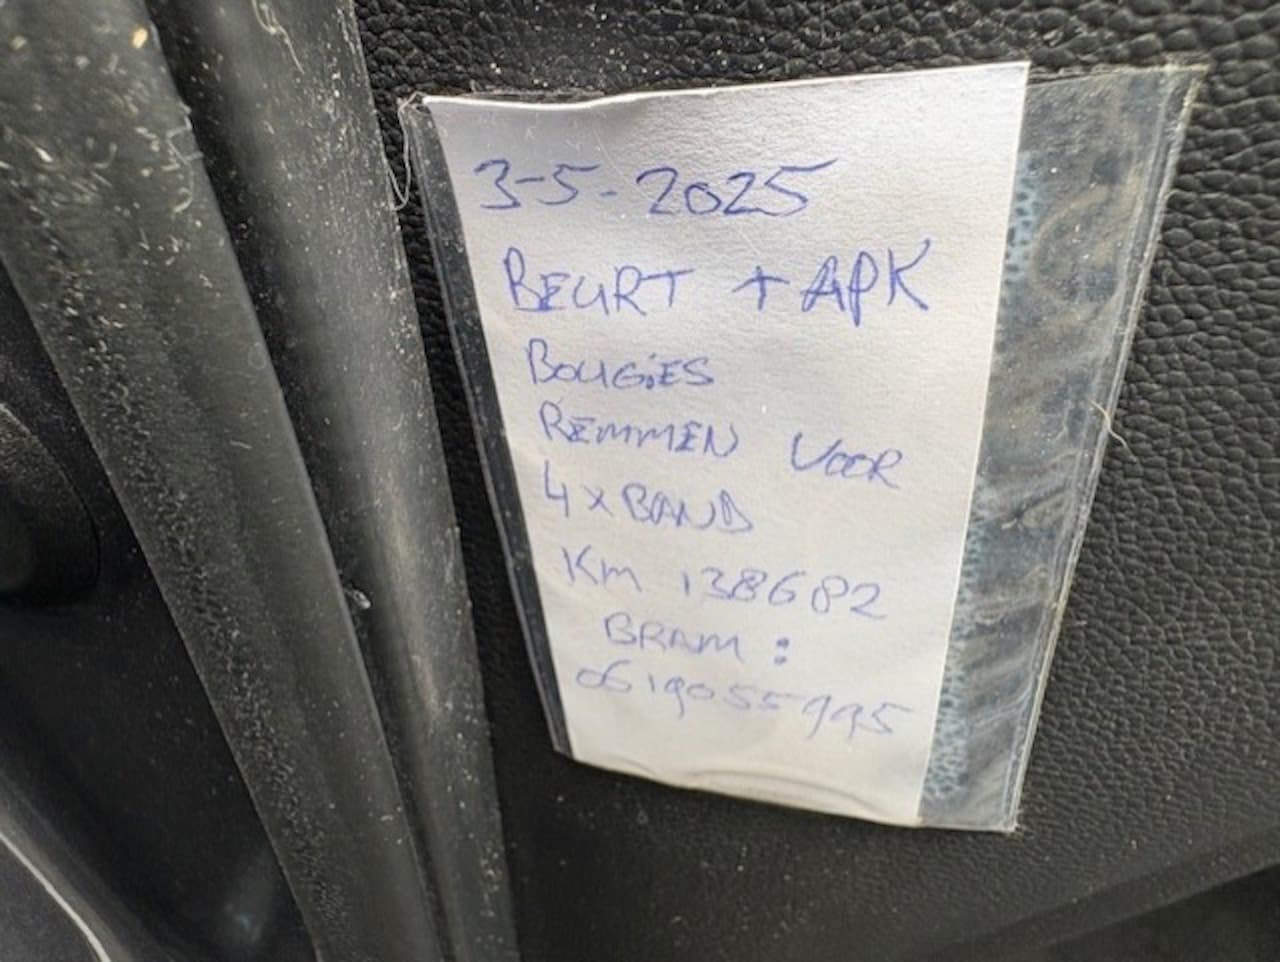 3-5-2025
BEURT + APK
BOUGiES
REMMEN VOOR
4 x BAND
Km 138682
BRAM :
0619055995